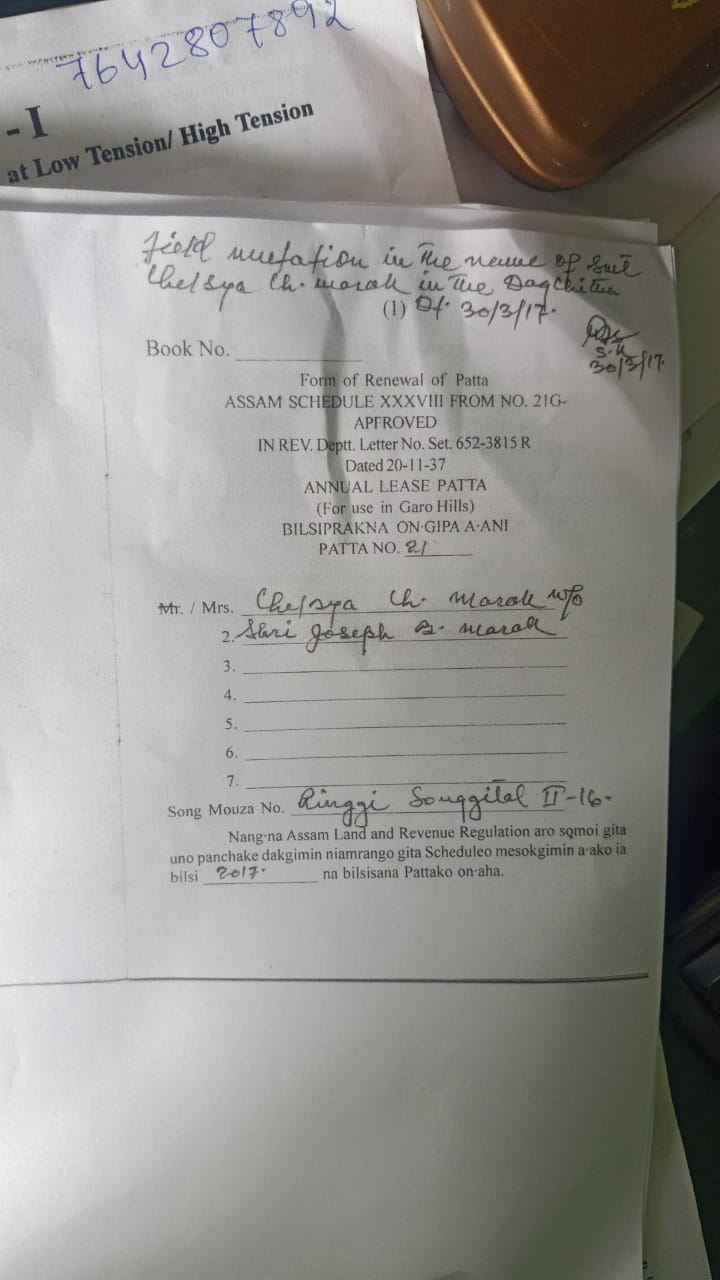 7642807892
- I
at Low Tension/ High Tension
Field mutation in the name of Smt
Chelsya Ch. marak in the Dag Chitha
(1) Dt. 30/3/17.
S.K
30/3/17
Book No.
Form of Renewal of Patta
ASSAM SCHEDULE XXXVIII FROM NO. 21G-
APFROVED
IN REV. Deptt. Letter No. Set. 652-3815 R
Dated 20-11-37
ANNUAL LEASE PATTA
(For use in Garo Hills)
BILSIPRAKNA ON·GIPA A·ANI
PATTA NO. 21
Mr. / Mrs. Chelsya Ch. Marak w/o
2. Shri Joseph B. Marak
3.
4.
5.
6.
7.
Song Mouza No. Ringgi Songgital II-16.
Nang·na Assam Land and Revenue Regulation aro sqmoi gita
uno panchake dakgimin niamrango gita Scheduleo mesokgimin a·ako ia
bilsi 2017. na bilsisana Pattako on·aha.